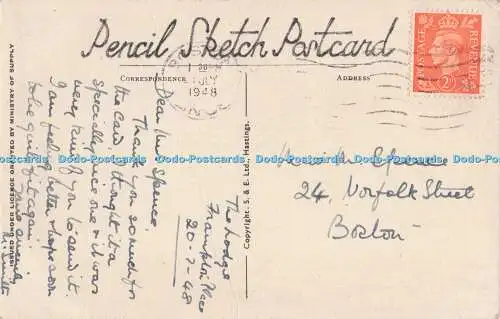 Pencil Sketch Postcard
CORRESPONDENCE
ADDRESS
JLY
1948
POSTAGE
REVENUE
2D
The Lodge
Frampton Place
20-7-48
Dear Miss Spence,
Thank you so much for
the card, I thought it a
specially nice one & it was
very kind of you to send it.
I am feeling better & hope soon
to be quite fit again.
Yours sincerely
Copyright. S. & E. Ltd., Hastings.
ISSUED UNDER LICENCE GRANTED BY MINISTRY OF SUPPLY
Miss M Spence
24, Norfolk Street
Boston
Dodo-Postcards Dodo-Postcards Dodo-Postcards Dodo-Postcards Dodo-Postcards